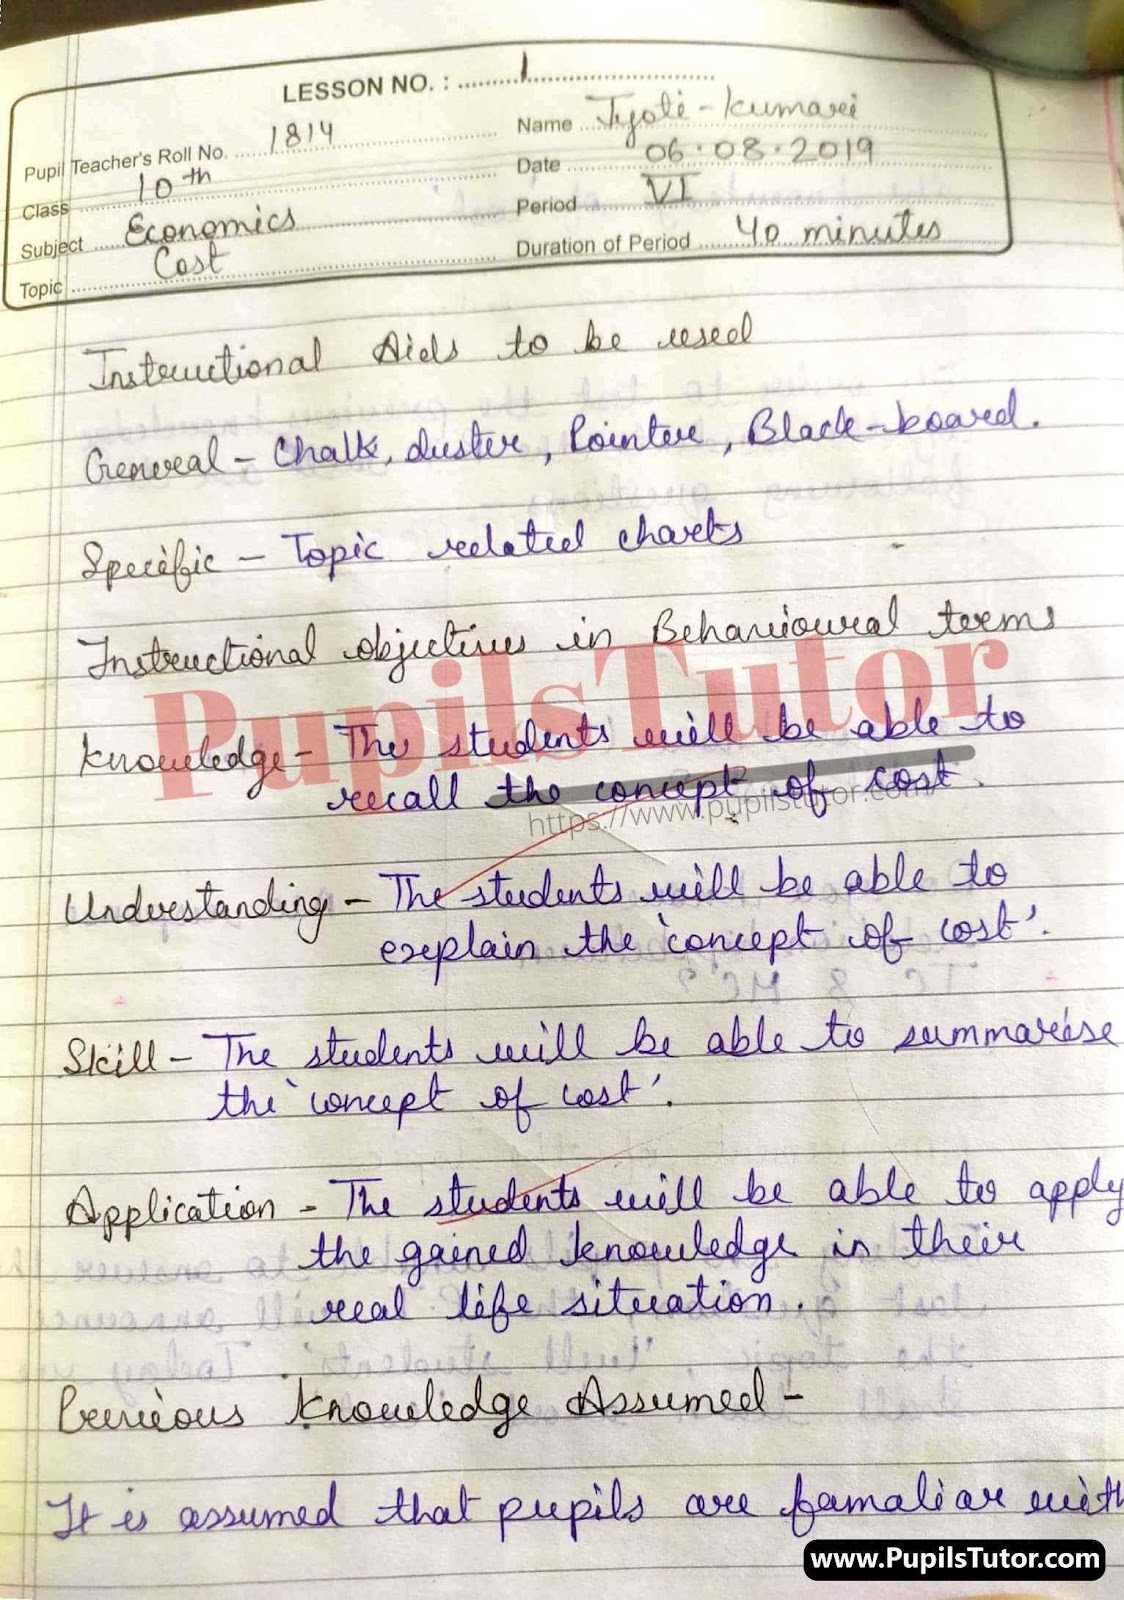 LESSON NO. : 1
Pupil Teacher's Roll No. 1814
Name Jyoti - Kumari
Class 10th
Date 06.08.2019
Subject Economics
Period VI
Topic Cost
Duration of Period 40 minutes
Instructional Aids to be used
General - Chalk, duster, Pointer, Black-board.
Specific - Topic related charts
Instructional objectives in Behavioural terms
Knowledge - The students will be able to
recall the concept of cost.
Understanding - The students will be able to
explain the 'concept of cost'.
Skill - The students will be able to summarise
the 'concept of cost'.
Application - The students will be able to apply
the gained knowledge in their
real life situation.
Previous Knowledge Assumed -
It is assumed that pupils are famaliar with
PupilsTutor
https://www.pupilstutor.com/
www.PupilsTutor.com